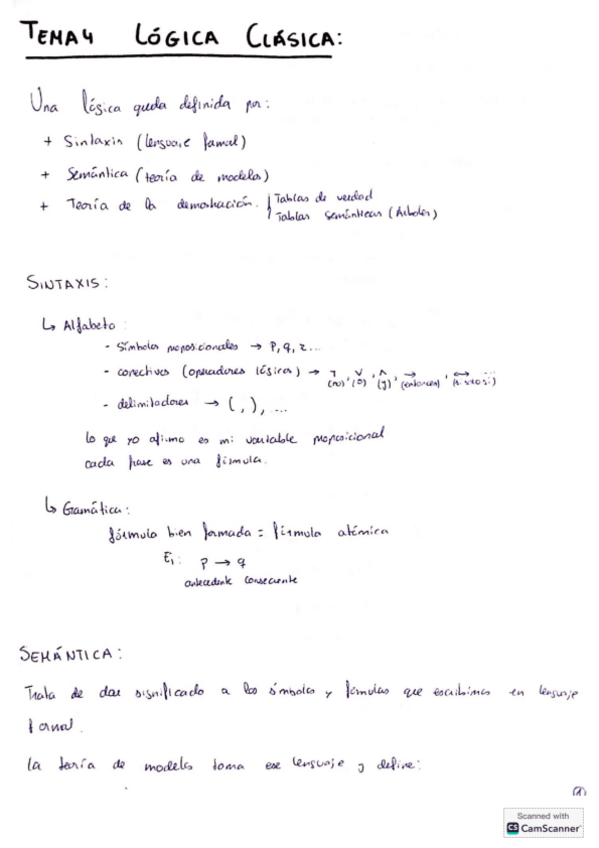 TEMA 4 LÓGICA CLÁSICA:
Una lógica queda definida por:
+ Sintaxis (lenguaje formal)
+ Semántica (teoría de modelos)
+ Teoría de la demostración. Tablas de verdad
Tablas semánticas (Árboles)
SINTAXIS:
↳ Alfabeto:
- Símbolos proposicionales → p, q, r...
- conectivos (operadores lógicos) → ¬ (no), ∨ (o), ∧ (y), → (entonces), ↔
- delimitadores → (, ), ...
lo que yo afirmo es mi variable proposicional
cada frase es una fórmula.
↳ Gramática:
fórmula bien formada = fórmula atómica
Ej: p → q
antecedente consecuente
SEMÁNTICA:
Trata de dar significado a los símbolos y fórmulas que escribimos en lenguaje
formal.
La teoría de modelos toma ese lenguaje y define:
①
Scanned with
CS CamScanner